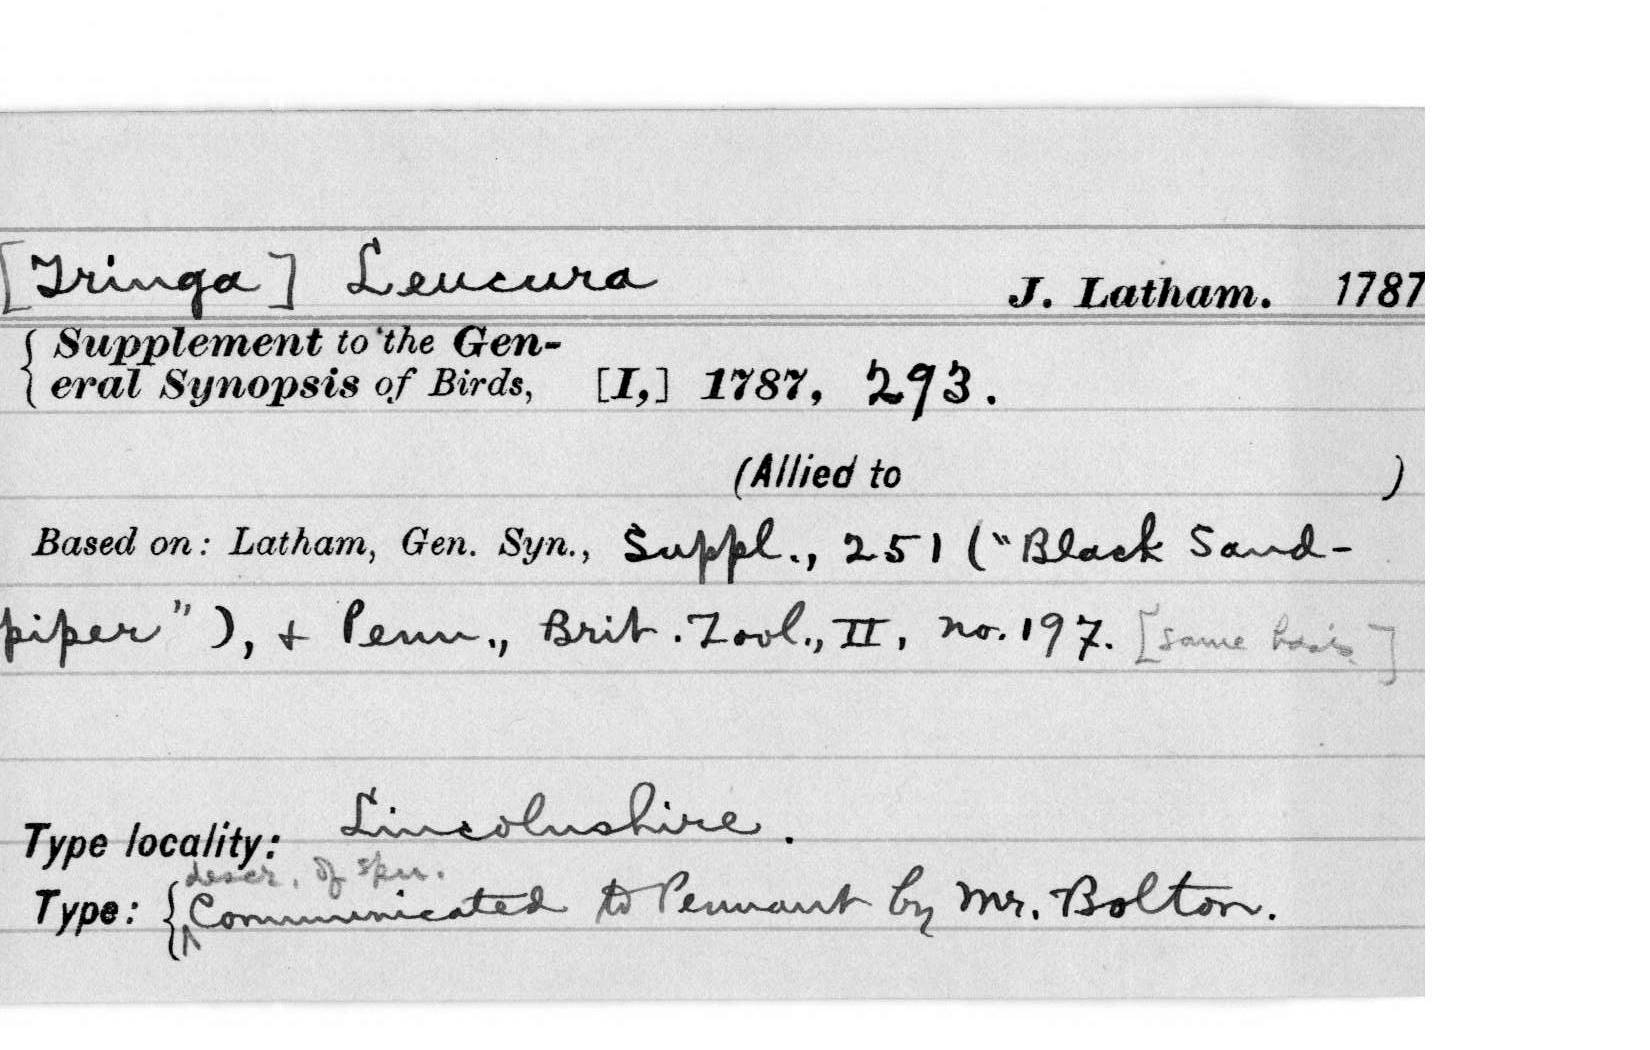 [Tringa] Leucura J. Latham. 1787
Supplement to the Gen-
eral Synopsis of Birds, [I,] 1787, 293.
(Allied to )
Based on: Latham, Gen. Syn., Suppl., 251 ("Black Sand-
piper"), & Penn., Brit. Zool., II, no. 197. [same basis]
Type locality: Lincolnshire.
descr. of spn.
Type: { Communicated to Pennant by Mr. Bolton.